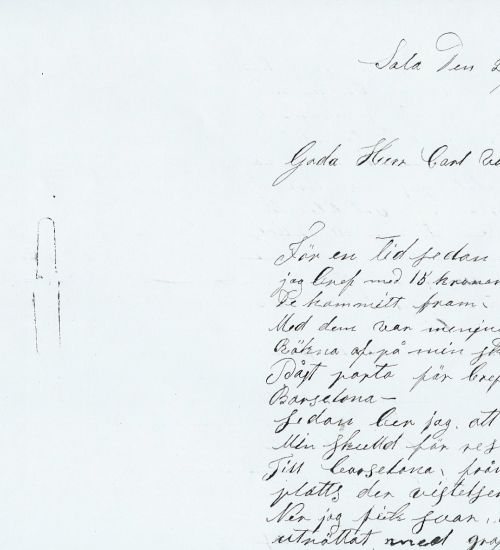 Sala Den
Goda Herr Carl
För en tid sedan
jag bref med 15 kronor
De kommitt fram.
Med dem var menjin
Räkna af på min sk
Båft porto för bref
Barselona—
sedan ber jag. att
Min skulld för res
Till barselona, från
platts der vistelsen
Ner jag fick svar.
uträttat med